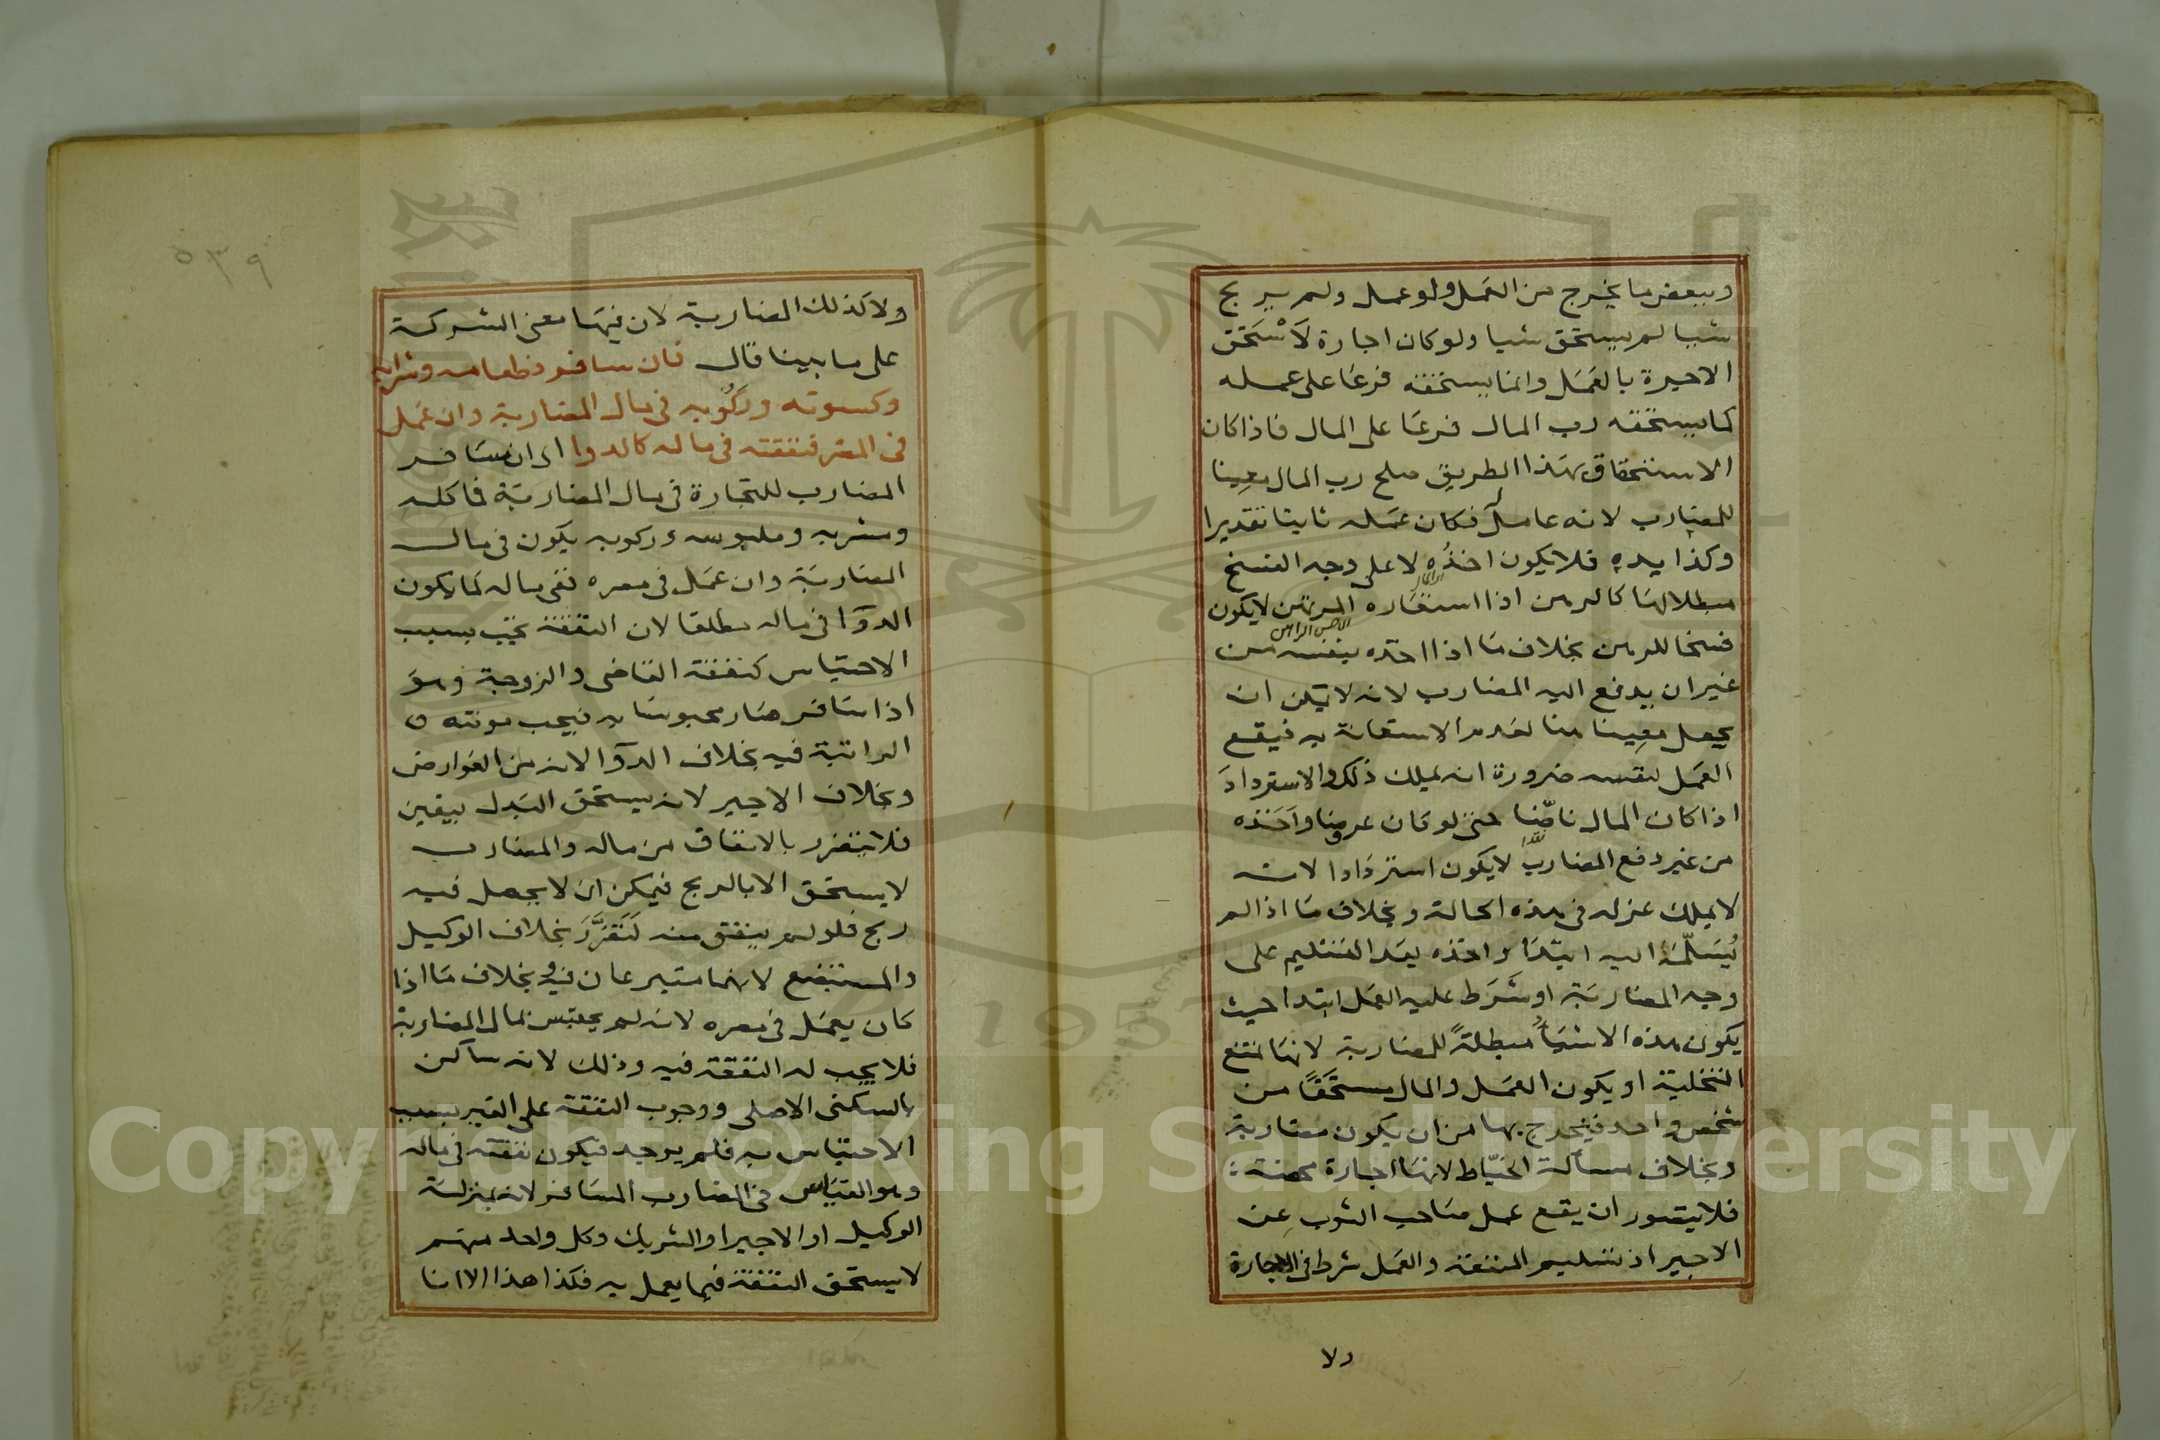 وببعض ما يخرج من العَمَل ولو عمل ولم يربح
شيا لم يستحق شيا ولو كان اجارة لَاسْتَحَقَّ
الاجرة بالعَمَل وانما يستحقه فرعًا على عمله
كما يستحقه رب المال فرعًا على المال فاذا كان
الاستحقاق بهذا الطريق صلح رب المال معينا
للمضارب لانه عامل فكان عمله ثابتا تقديرا
وكذا يده فلا يكون اخذُه لا على وجه الفسخ
مبطلا لهَا كالرهن اذا استعاره المرتهن لا يكون
فسخا للرهن بخلاف مَا اذا اخذه بنفسه من
غير ان يدفع اليه المضارب لانه لا يمكن ان
يجعل معينا هنا لعَدم الاستعانة به فيقع
العَمَل لنفسه ضرورة انه يملك ذلك والاستردادَ
اذا كان المال ناضّا حتى لو كان عروضا وَاَخَذه
من غير دفع المضارب لا يكون استردَادا لانه
لا يملك عزله في هذه الحالة وبخلاف مَا اذا لم
يُسَلّمْه اليه ابتدَا واخذه بعد التسْليم على
وجه المضاربَة او شَرَط عليه العمَل ابتدا حيث
يكون هذه الاشيَاُ مبطلةً للمضاربة لانهَا تمنع
التخلية او يكون العمَل والمال مستحَقًا من
شخص واحد فيخرج بها من ان يكون مضاربة
وبخلاف مسألة الخيّاط لانهَا اجارة محضة
فلا يتصور ان يقع عمل صَاحب الثوب عن
الاجير اذ تسليم المنفعة والعَمَل شرط في الاجارة
ولا
٥٣٩
ولا كذلك المضاربة لان فيهَا معنى الشركة
على ما بينا قال فان سافر فطعامه وشرابه
وكسوته وركُوبه في مال المضاربة وان عَمل
في المصر فنفقته في ماله كالدوا اى ان سَافر
المضارب للتجارة في مال المضاربَة فاكله
وشربه وملبوسه وركوبه يكون في مال
المضاربَة وان عمَل في مصره ففي ماله كما يكون
الدوَآ في ماله مطلقا لان النفقة تجبُ بسبب
الاحتباس كنفقة القاضى والزوجة وهوَ
اذا سَافر صَار محبوسَا به فيجب مونته
الراتبة فيه بخلاف الدوَآ لانه من العَوارض
وبخلاف الاجير لانه يستحق البَدل بيقين
فلا يتضرر بالانفاق من ماله والمضارب
لا يستحق الا بالربح فيمكن ان لا يحصل فيه
ربح فلو لم ينفق منه لَتَضَرَّرَ بخلاف الوكيل
والمستبضع لانهما متبرعان فيه وبخلاف مَا اذا
كان يعمَل في مصره لانه لم يحتبس بمال المضاربة
فلا يجب له النفقة فيه وذلك لانه ساكن
بالسكنى الاصلى ووجوب النفقة على الغير بسبب
الاحتباس به فلم يوجد فيكون نفقته في ماله
وهو القيَاس في المضارب المسَافر لانه بمنزلة
الوكيل او الاجير او الشريك وكل واحد منهم
لا يستحق النفقة فيما يعمل به فكذا هذا الا انا
Copyright © King Saud University
1957